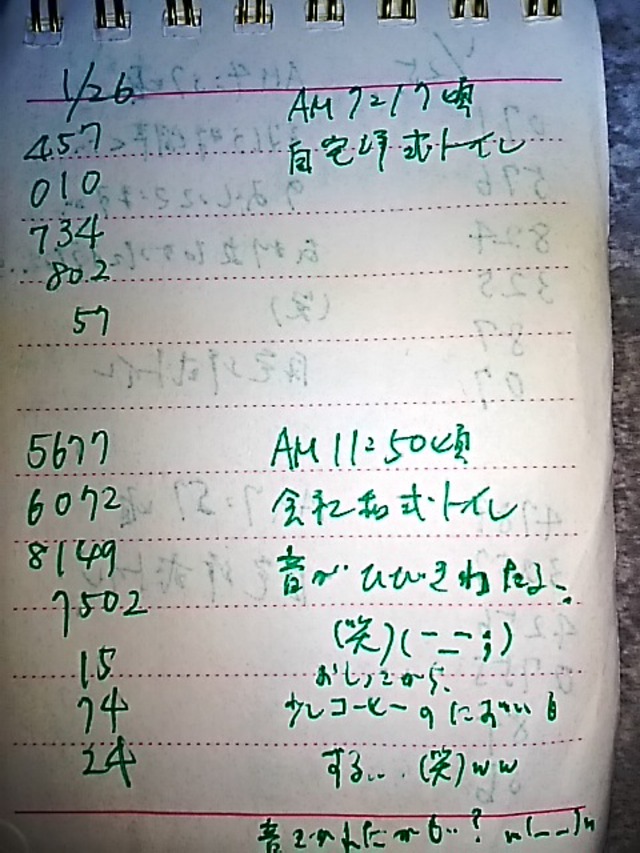 1/26
457 AM 7:17頃
010 自宅洋式トイレ
734
802
57
5677 AM 11:50頃
6072 会社和式トイレ
8149 音がひびきわたる、
7502
(笑)(ー_ー;)
15 おしっこから、
74 少しコーヒーのにおいも
24 する... (笑)ww
音きかれたかも..? m(_ _)m